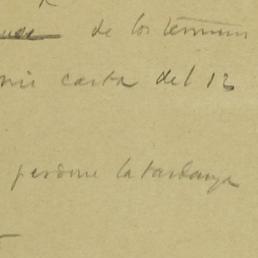 de los térmi
mi carta del 12
perdone la tardanza